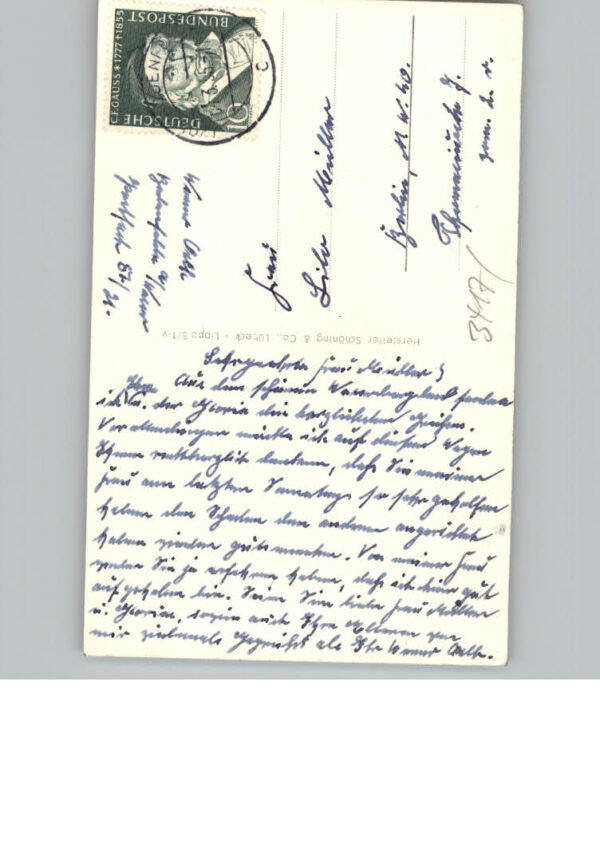 DEUTSCHE
BUNDESPOST
C.F.GAUSS * 1777 † 1855
10
c
Werner
Postfach 87/
Frau
Lilo Müller
Berlin, N.W. 40.
Thomasiusstr. 9.
3417/
Hersteller Schöning & Co., Lübeck - Lippo 5/1-v
Sehrgeehrte Frau Müller!
Aus dem schönen Weserbergland senden
ich u. der Gloria die herzlichsten Grüße.
Vor allen Dingen möchte ich auf diesem Wege
Ihnen recht herzlich danken, daß Sie meiner
Frau am letzten Samstag so sehr geholfen
haben den Schaden den andere angerichtet
haben wieder gutzumachen. Von meiner Frau
werden Sie ja erfahren haben, daß ich hier gut
aufgehoben bin. Seien Sie liebe Frau Müller
u. Gloria, sowie auch Ihre Eltern von
mir vielmals gegrüßt als Ihr Werner